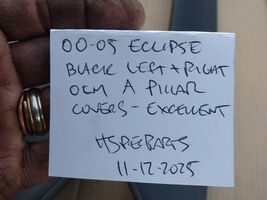 00-05 ECLIPSE
BLACK LEFT + RIGHT
OEM A PILLAR
COVERS - EXCELLENT
HSPEPARTS
11-12-2025